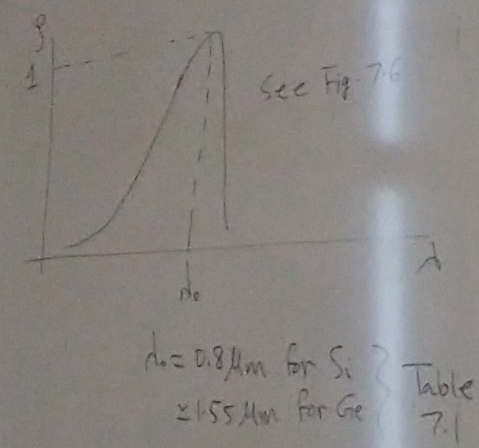 ρ
1
See Fig. 7.6
λ
λ₀
λ₀ = 0.8 μm for Si
≃ 1.55 μm for Ge
Table
7.1